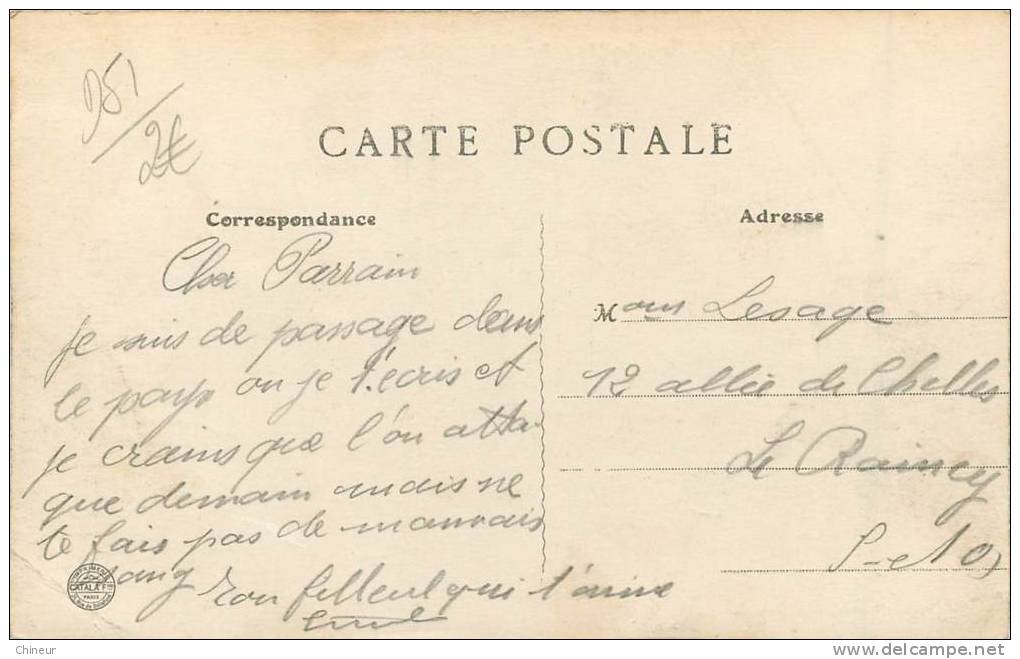 951/
2€
CARTE POSTALE
Correspondance
Cher Parrain
je suis de passage dans
le pays ou je t'ecris et
je crains que l'on atta
que demain mais ne
te fais pas de mauvais
sang
ton filleul qui t'aime
Adresse
Mous Lesage
12 allée de Chelles
Le Raincy
S-et O
IMPRIMERIE
CATALA Frs
PARIS
Chineur
delcampe.net